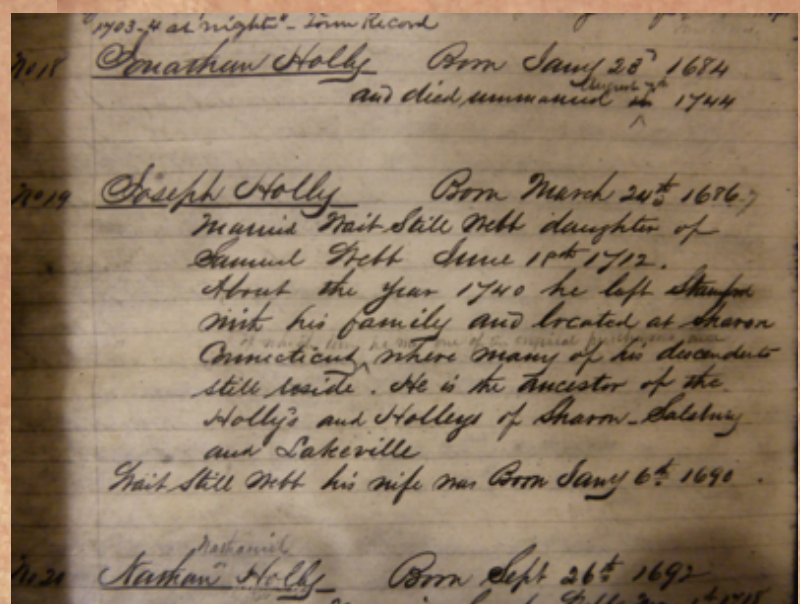 1703-4 at "night" - Town Record
No 18 Jonathan Holly Born Jany 23d 1684
August 7th
and died unmarried in 1744
No 19 Joseph Holly Born March 24th 1686.7
Married Wait Still Webb daughter of
Samuel Webb June 18th 1712.
About the year 1740 he left Stamford
with his family and located at Sharon
of which town he was one of the original purchasers
Connecticut, where many of his descendents
still reside. He is the ancestor of the
Holly's and Holleys of Sharon - Salsbury
and Lakeville
Wait Still Webb his wife was Born Jany 6th 1690.
Nathaniel
No 20 Nathan Holly Born Sept 26th 1692